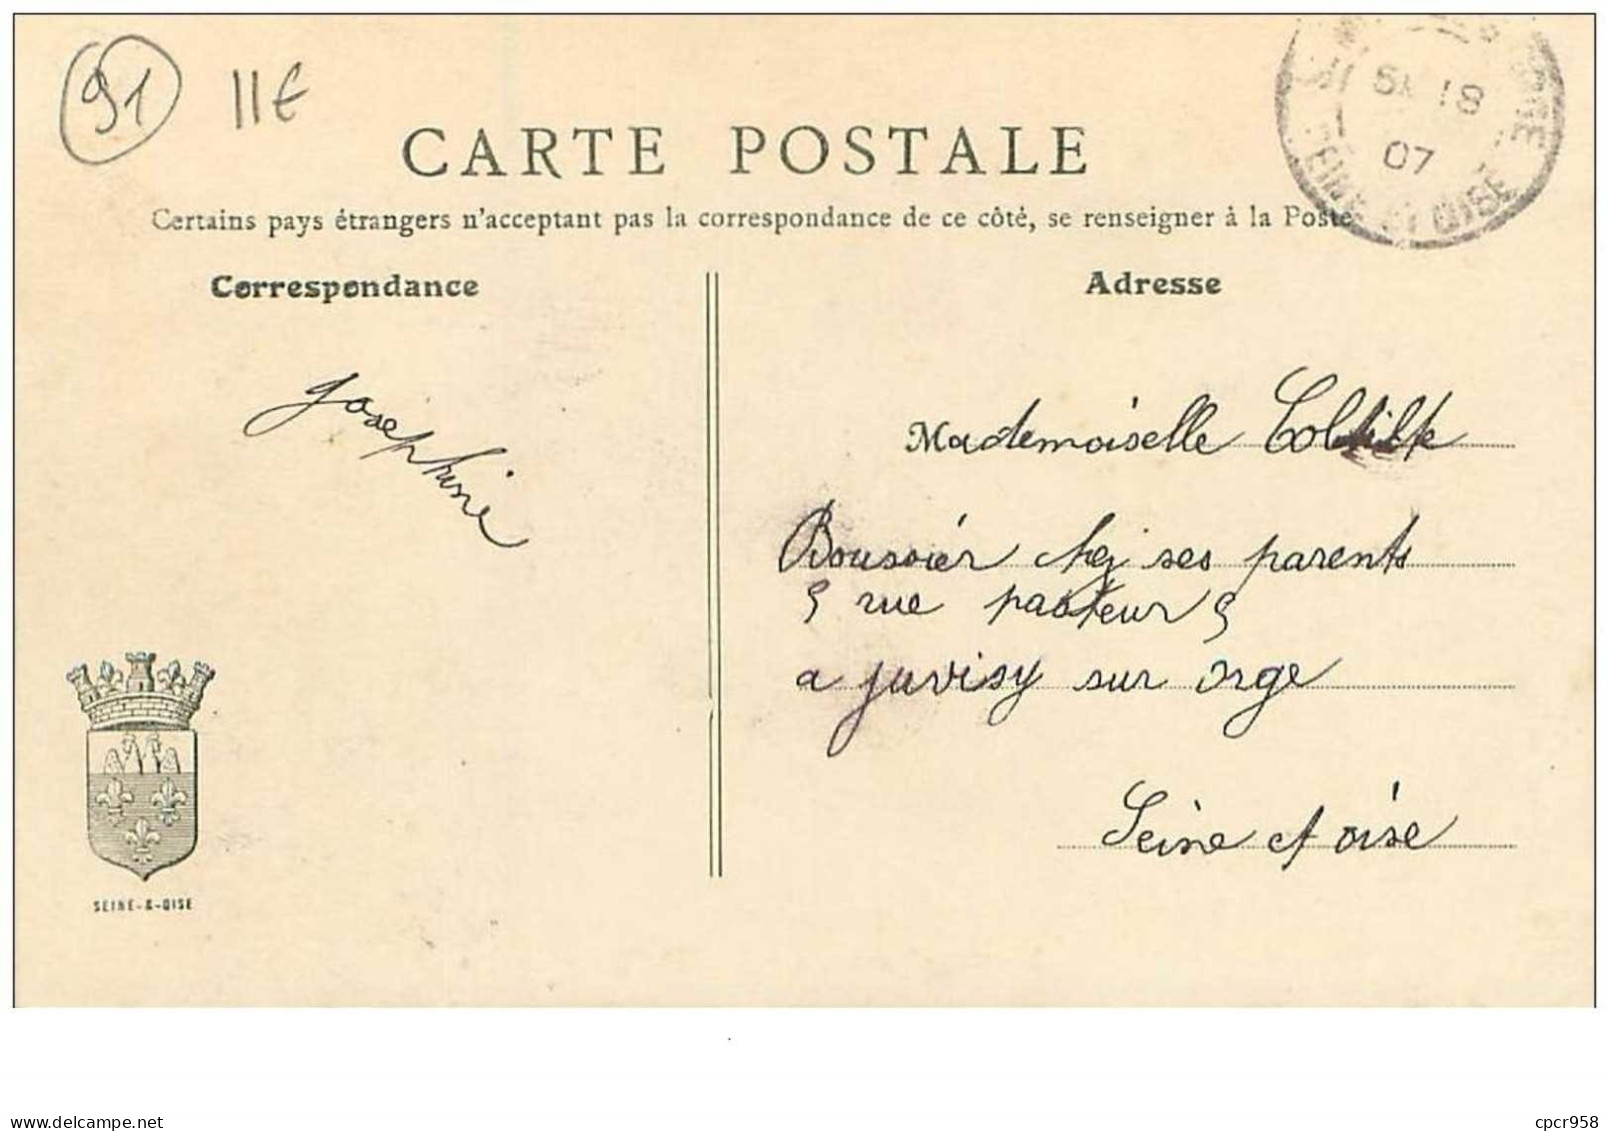 91 11€
CARTE POSTALE
Certains pays étrangers n'acceptant pas la correspondance de ce côté, se renseigner à la Poste
Correspondance
Adresse
07
Josephine
Mademoiselle
Bousoiér chej ses parents
9 rue pasteur 9
a juvisy sur orge
Seine et oise
SEINE-&-OISE
www.delcampe.net
cpcr958